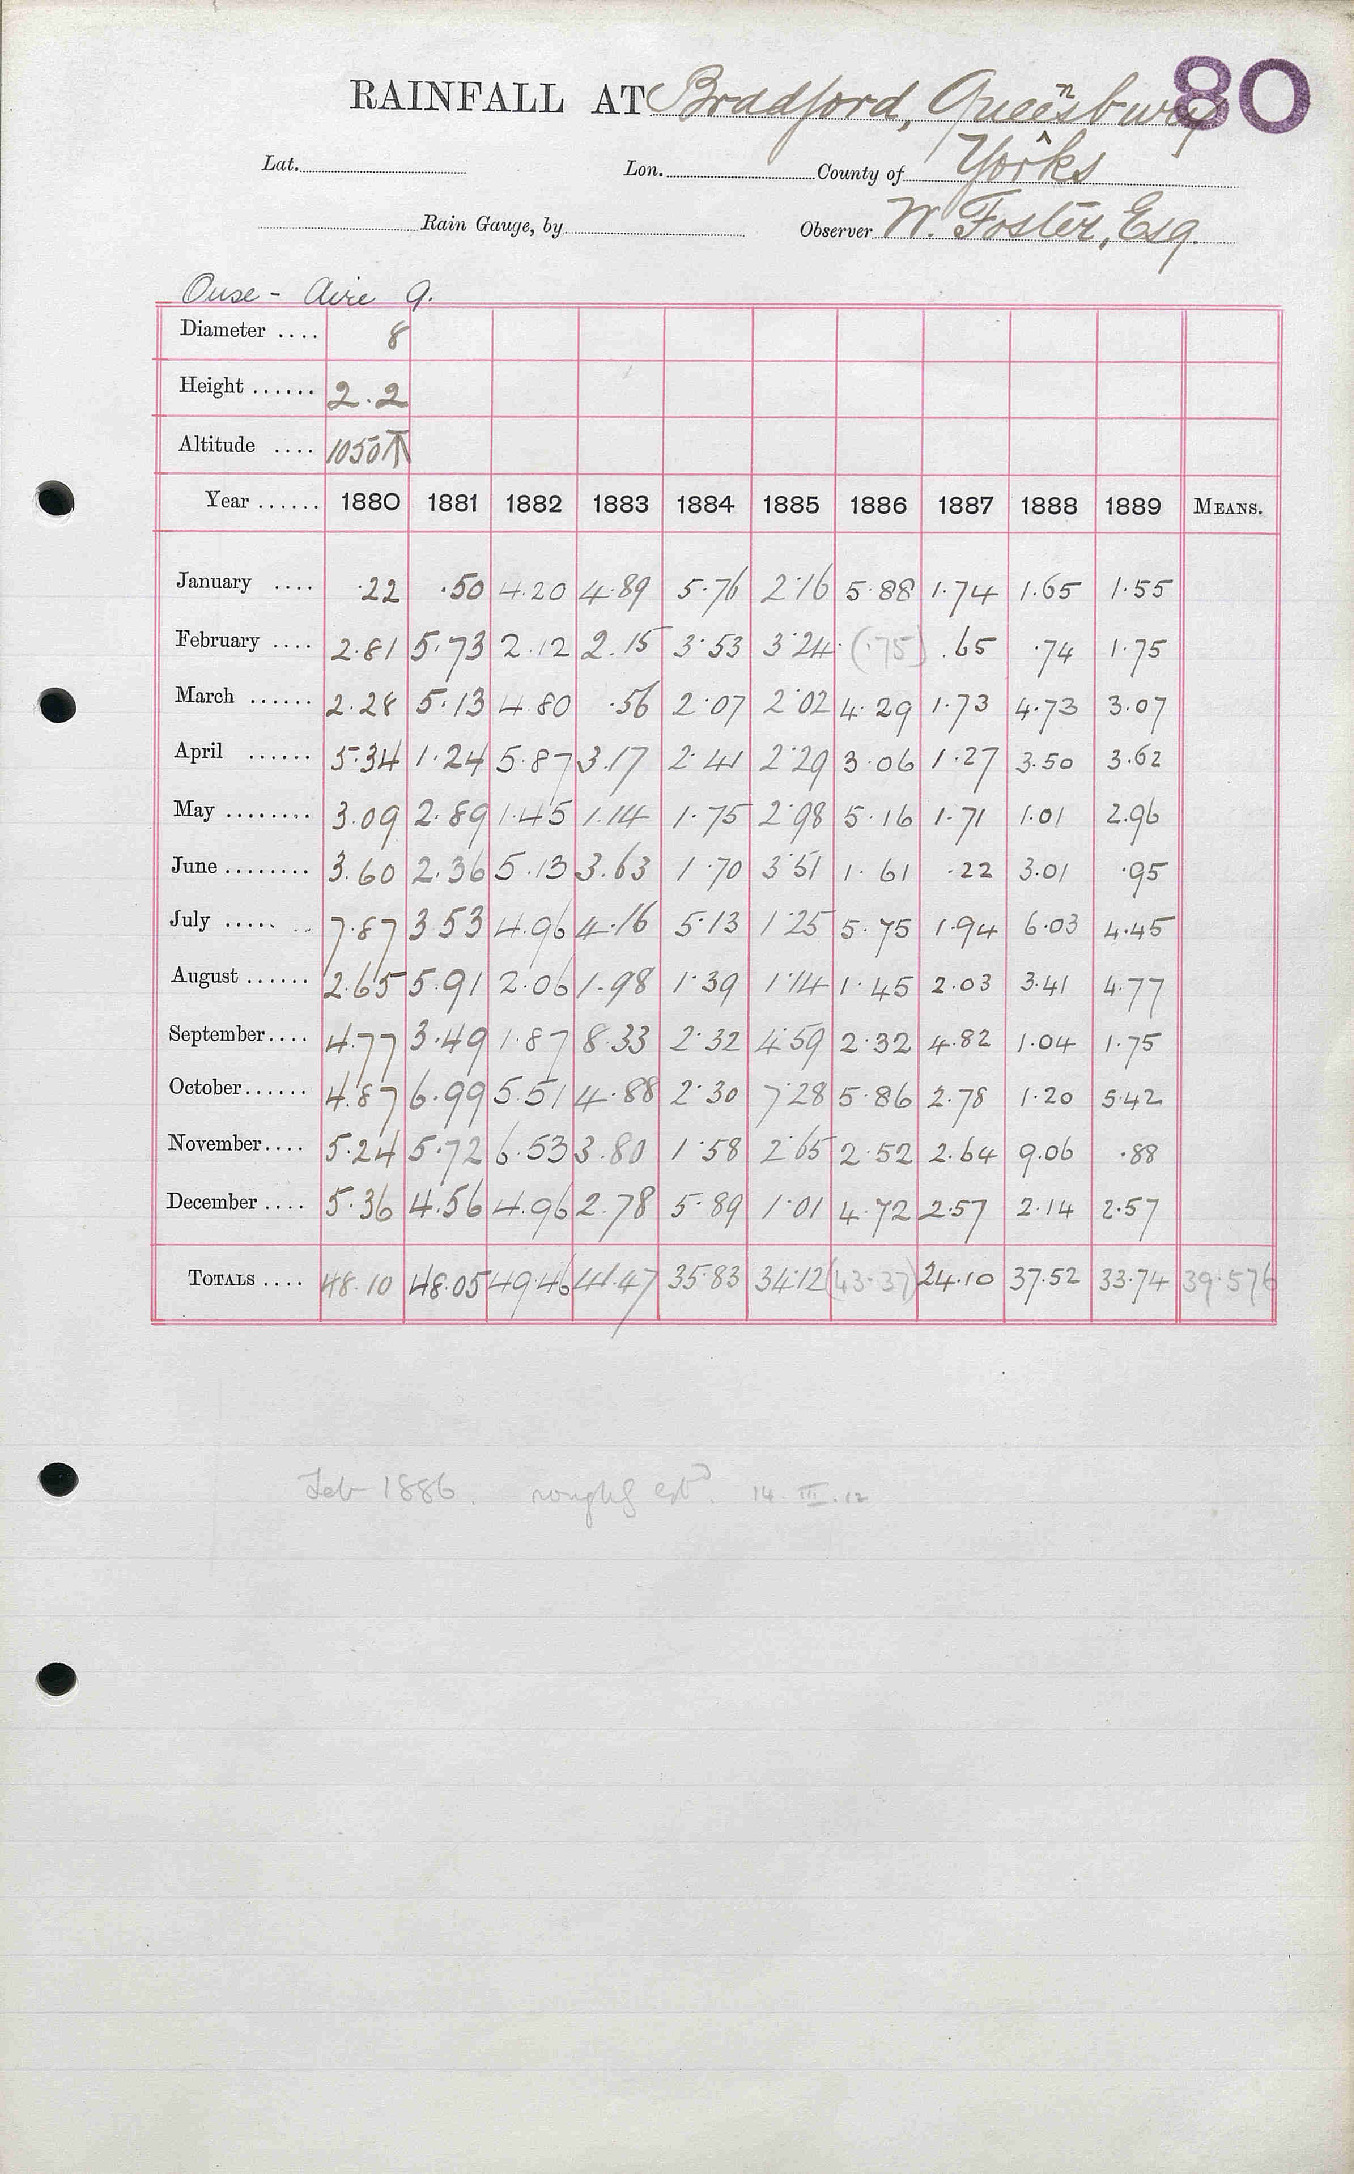 80
RAINFALL AT Bradford, Queensbury
Lat. Lon. County of Yorks
Rain Gauge, by Observer W. Foster, Esq.
Ouse - Aire 9.
Diameter .... 8
Height ...... 2.2
Altitude .... 1050 T
Year ...... 1880 1881 1882 1883 1884 1885 1886 1887 1888 1889 MEANS.
January .... .22 .50 4.20 4.89 5.76 2.16 5.88 1.74 1.65 1.55
February .... 2.81 5.73 2.12 2.15 3.53 3.24 (.75) .65 .74 1.75
March ...... 2.28 5.13 4.80 .56 2.07 2.02 4.29 1.73 4.73 3.07
April ...... 5.34 1.24 5.87 3.17 2.41 2.29 3.06 1.27 3.50 3.62
May ........ 3.09 2.89 1.45 1.14 1.75 2.98 5.16 1.71 1.01 2.96
June ........ 3.60 2.36 5.13 3.63 1.70 3.51 1.61 .22 3.01 .95
July ..... .. 7.87 3.53 4.96 4.16 5.13 1.25 5.75 1.94 6.03 4.45
August ...... 2.65 5.91 2.06 1.98 1.39 1.14 1.45 2.03 3.41 4.77
September.... 4.77 3.49 1.87 8.33 2.32 4.59 2.32 4.82 1.04 1.75
October...... 4.87 6.99 5.51 4.88 2.30 7.28 5.86 2.78 1.20 5.42
November.... 5.24 5.72 6.53 3.80 1.58 2.65 2.52 2.64 9.06 .88
December .... 5.36 4.56 4.96 2.78 5.89 1.01 4.72 2.57 2.14 2.57
TOTALS .... 48.10 48.05 49.46 41.47 35.83 34.12 (43.37) 24.10 37.52 33.74 39.576
Feb 1886. roughly estd. 14.III.12